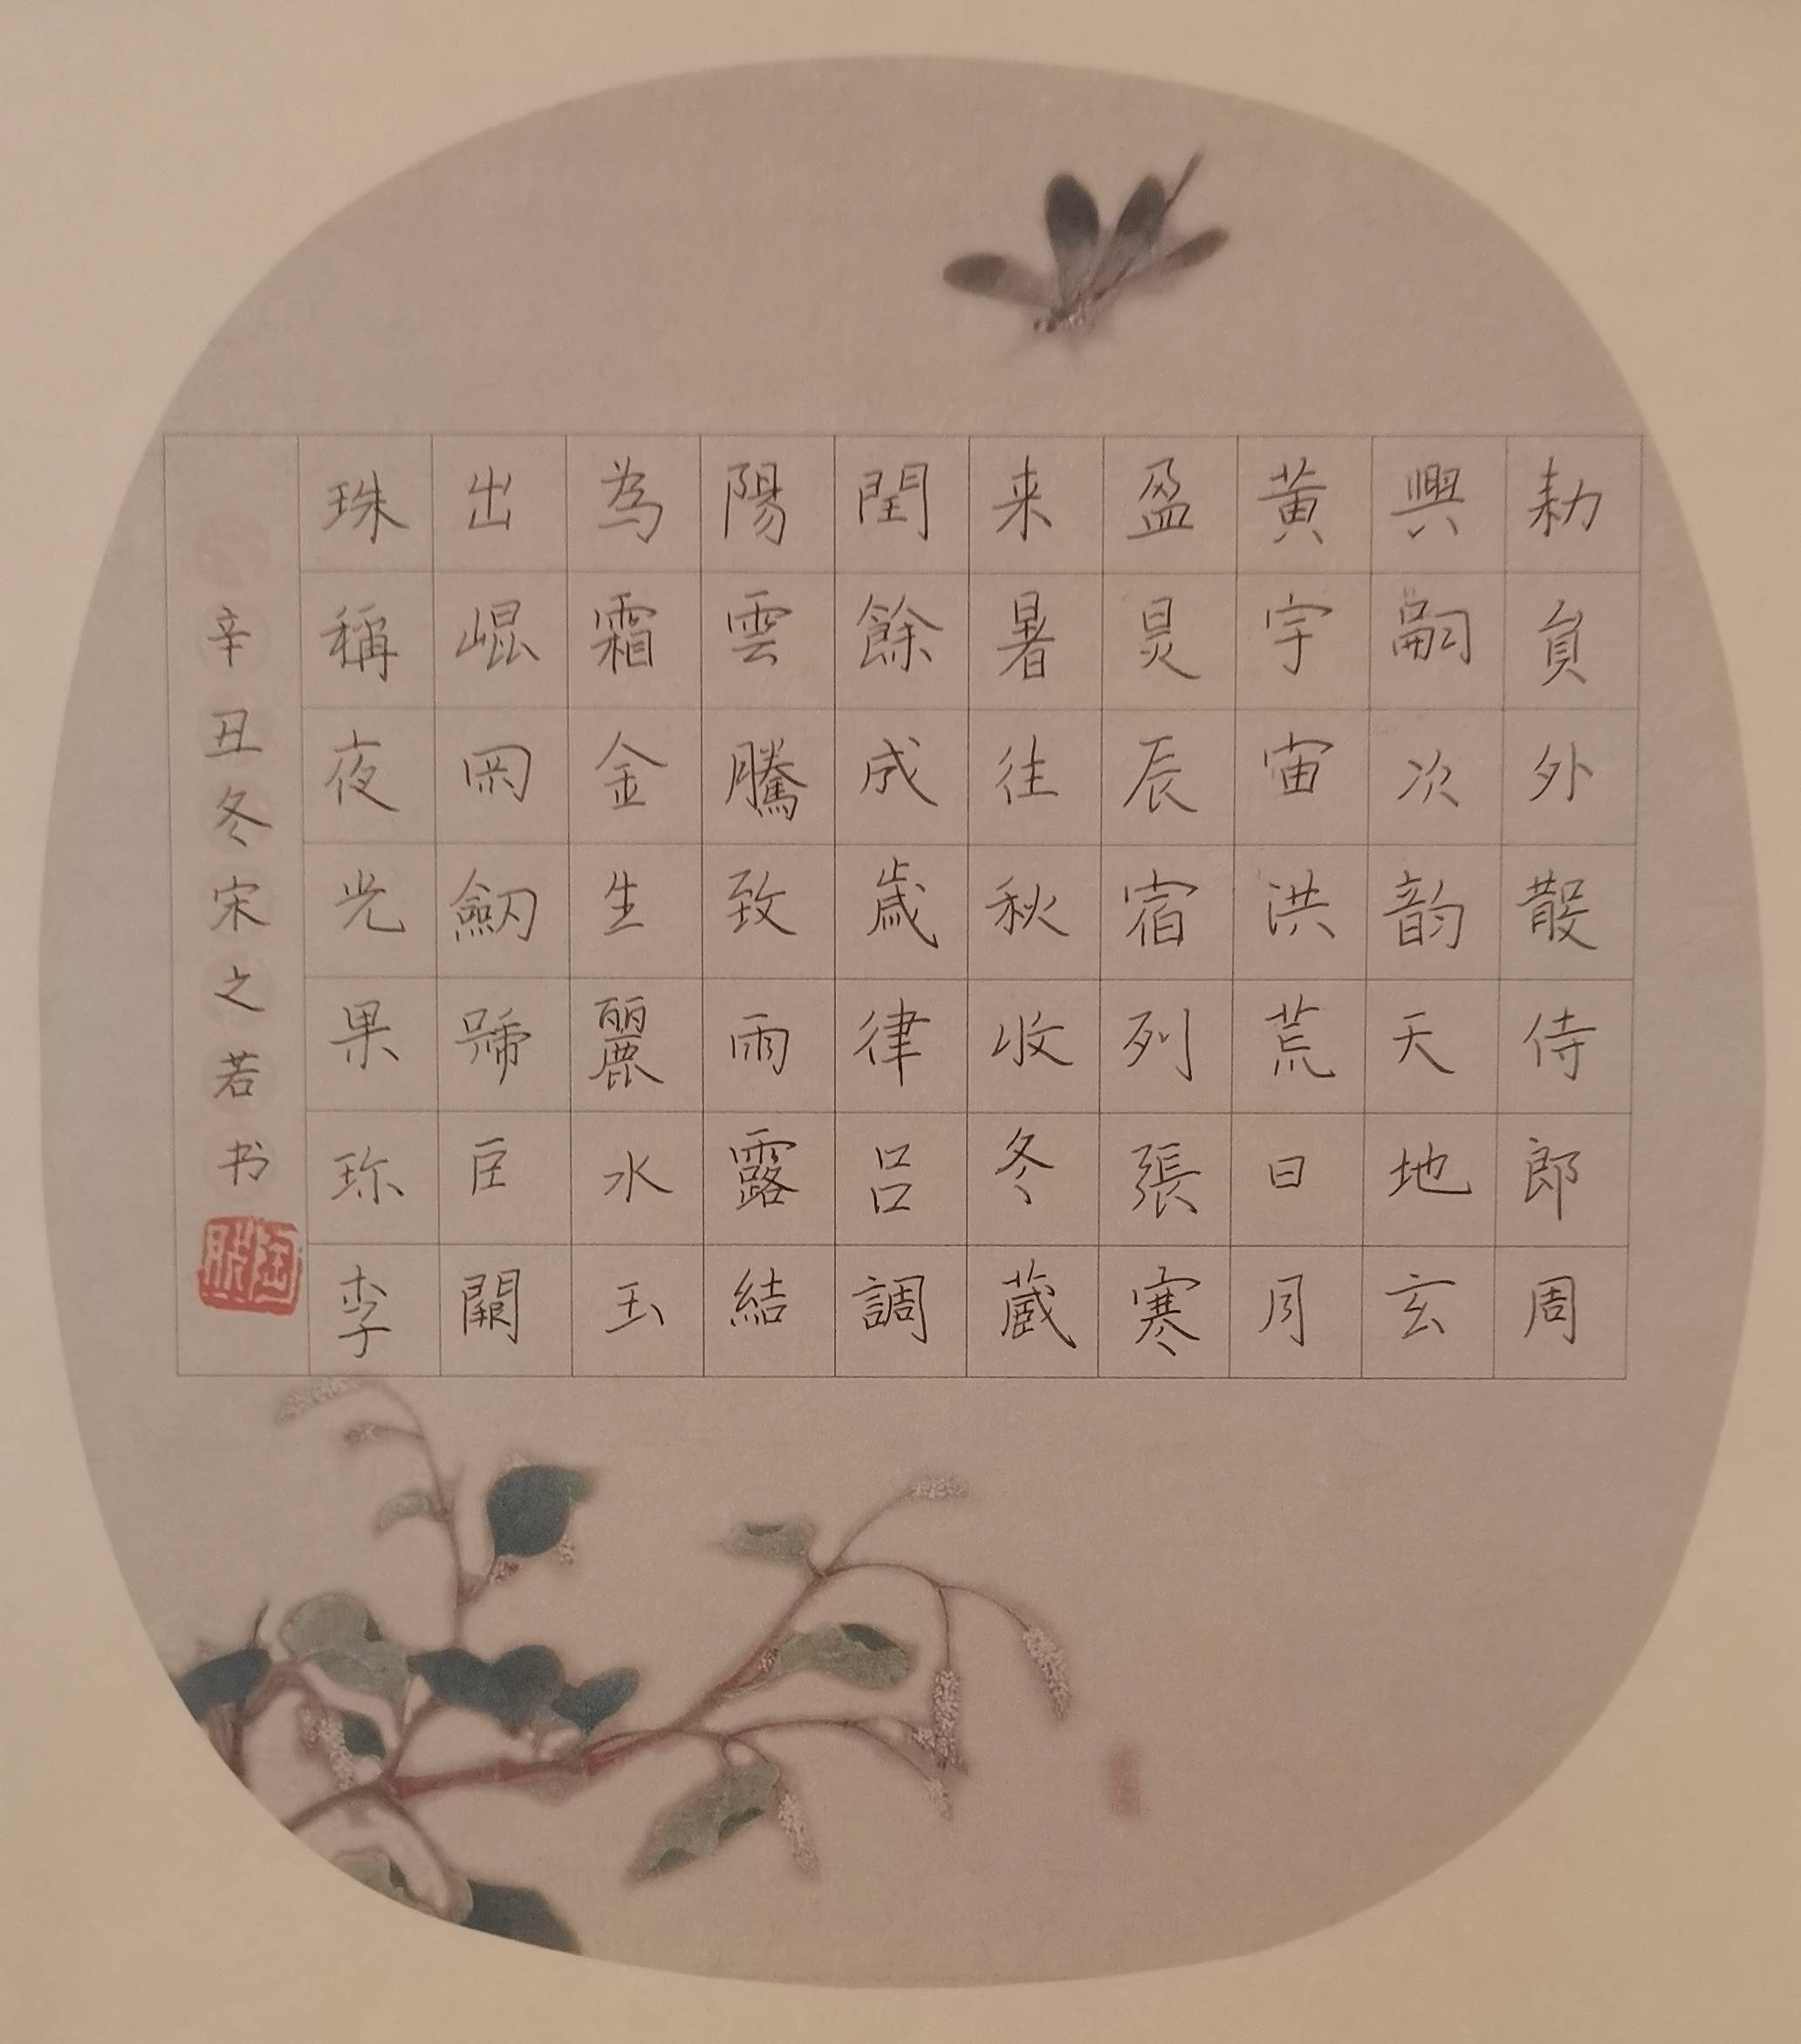 勅員外散侍郎周
興嗣次韵天地玄
黄宇宙洪荒日月
盈昃辰宿列張寒
来暑往秋收冬蔵
閏餘成歲律呂調
陽雲騰致雨露結
為霜金生麗水玉
出崐罔劒號臣闕
珠稱夜光果珎李
辛丑冬宋之若书